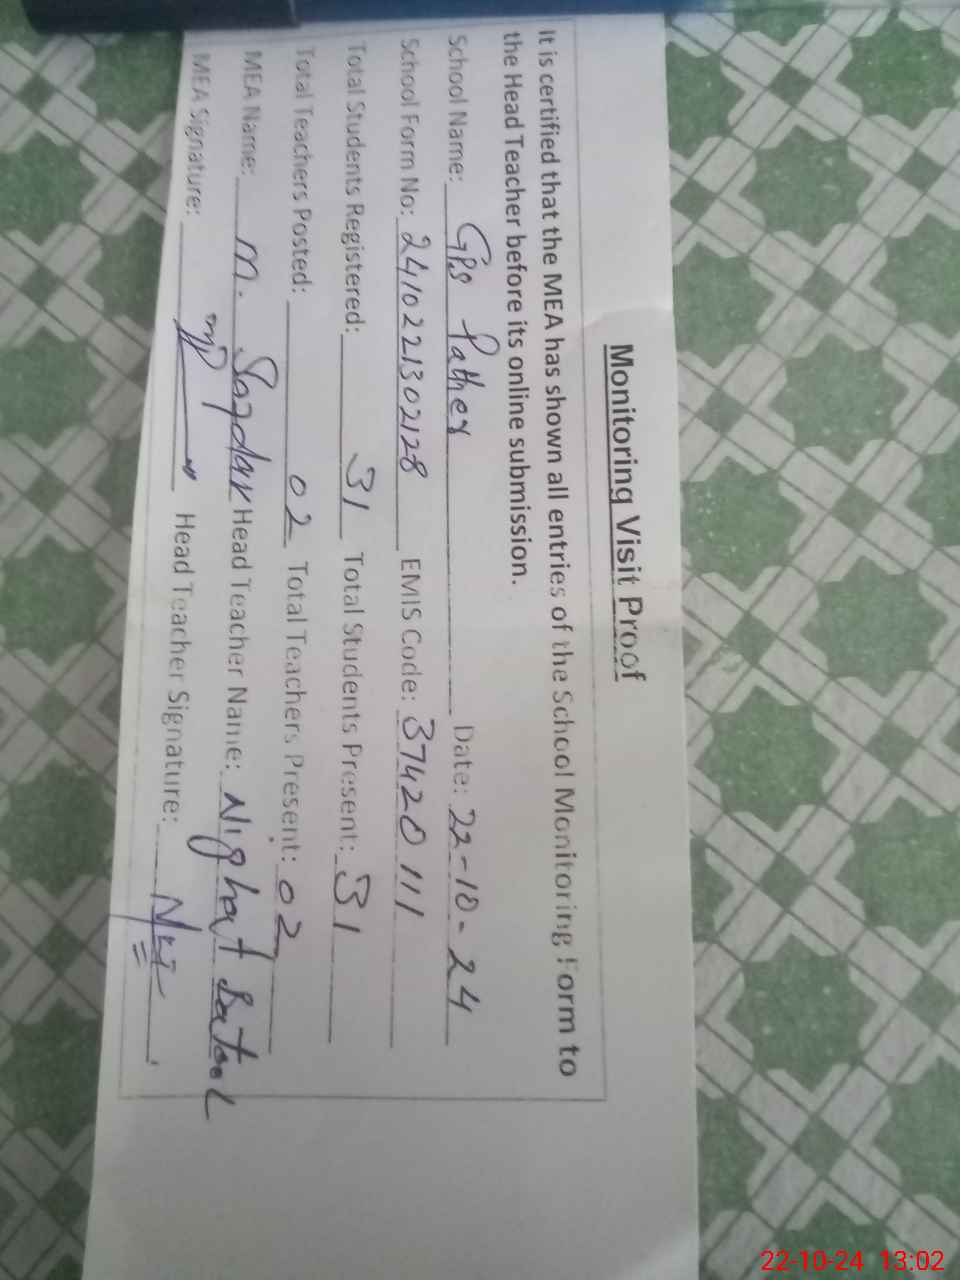 Monitoring Visit Proof
It is certified that the MEA has shown all entries of the School Monitoring Form to
the Head Teacher before its online submission.
School Name: GPS Pather Date: 22-10-24
School Form No: 2410221302128 EMIS Code: 37420111
Total Students Registered: 31 Total Students Present: 31
Total Teachers Posted: 02 Total Teachers Present: 02
MEA Name: M. Safdar Head Teacher Name: Nighat Batool
MEA Signature: Head Teacher Signature:
22-10-24 13:02